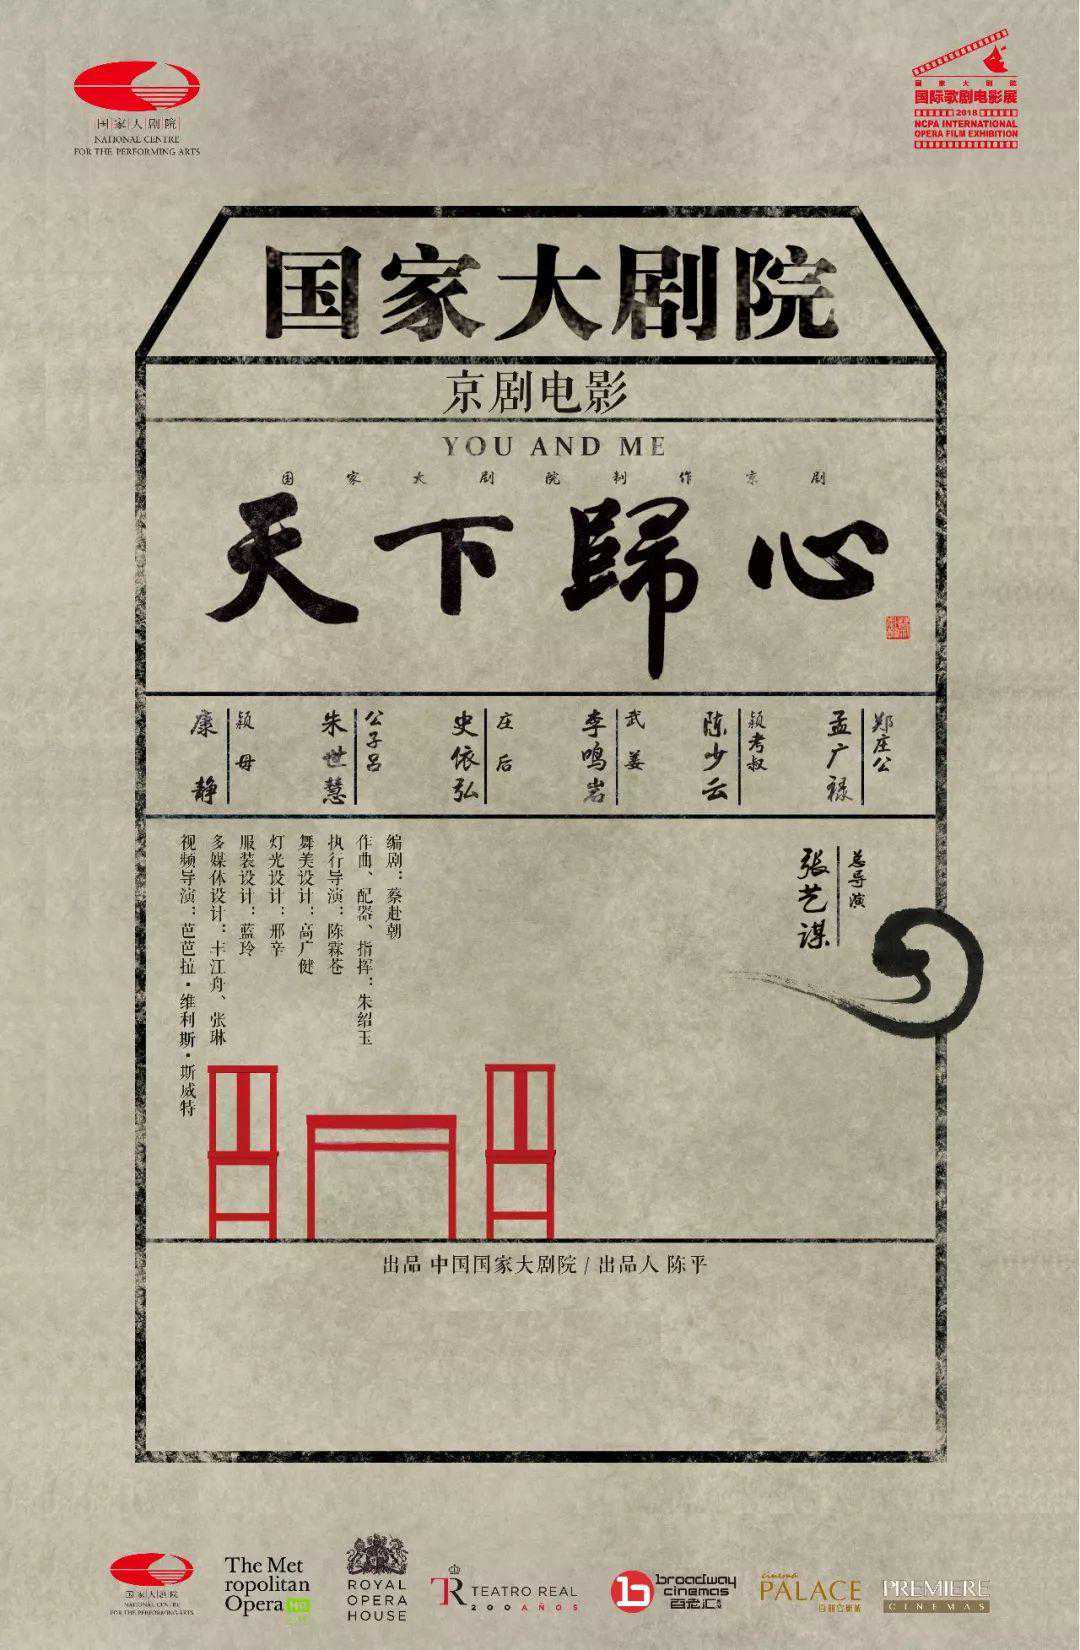 国家大剧院
NATIONAL CENTRE
FOR THE PERFORMING ARTS
国家大剧院
国际歌剧电影展
2018
NCPA INTERNATIONAL
OPERA FILM EXHIBITION
国家大剧院
京剧电影
YOU AND ME
国家大剧院制作京剧
天下歸心
郑庄公
孟广禄
颍考叔
陈少云
武姜
李鸣岩
庄后
史依弘
公子吕
朱世慧
颍母
康静
总导演
张艺谋
编剧：蔡赴朝
作曲、配器、指挥：朱绍玉
执行导演：陈霖苍
舞美设计：高广健
灯光设计：邢辛
服装设计：蓝玲
多媒体设计：丰江舟、张琳
视频导演：芭芭拉·维利斯·斯威特
出品 中国国家大剧院 / 出品人 陈平
国家大剧院
NATIONAL CENTRE
FOR THE PERFORMING ARTS
The Met
ropolitan
Opera HD
ROYAL
OPERA
HOUSE
TR TEATRO REAL
200 AÑOS
broadway
cinemas
百老汇
cinema
PALACE
百丽宫影城
PREMIERE
CINEMAS